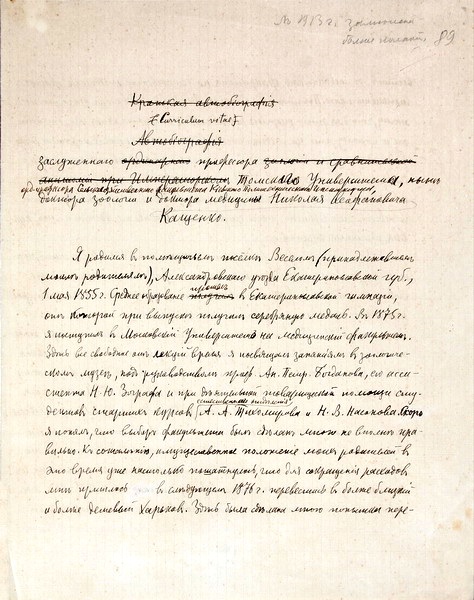 89
Краткая автобіографія
(Curriculum vitae)
Автобіографія
заслуженнаго ординарнаго професора зоологіи и сравнительной
анатоміи при Императорскомъ Томскаго Университета, нынѣ
професора Кіевскаго Политехническаго Института,
доктора зоологіи и доктора медицины Николая Ѳеофановича
Кащенко.
Я родился въ помѣщичьемъ имѣніи Веселомъ (принадлежавшемъ
моимъ родителямъ), Александровскаго уѣзда Екатеринославской губ.,
1 мая 1855 г. Среднее образованіе получилъ въ Екатеринославской гимназіи,
отъ которой при выпускѣ получилъ серебряную медаль. Въ 1875 г.
я поступилъ въ Московскій Университетъ на Медицинскій факультетъ.
Здѣсь все свободное отъ лекцій время я посвящалъ занятіямъ въ зоологиче-
скомъ музеѣ, подъ руководствомъ проф. Ан. Петр. Богданова, его асси-
стента Н. Ю. Зографа и при товарищеской помощи сту-
дентовъ старшихъ курсовъ А. А. Тихомирова и Н. В. Насонова. Скоро
я понялъ, что выборъ факультета былъ сдѣланъ мною не вполнѣ пра-
вильно. Къ сожалѣнію, имущественное положеніе моихъ родителей въ
это время уже настолько пошатнулось, что для сокращенія расходовъ
мнѣ пришлось въ слѣдующемъ 1876 г. перевестись въ болѣе близкій
и болѣе дешевый Харьковъ. Здѣсь была сдѣлана мною попытка пере-